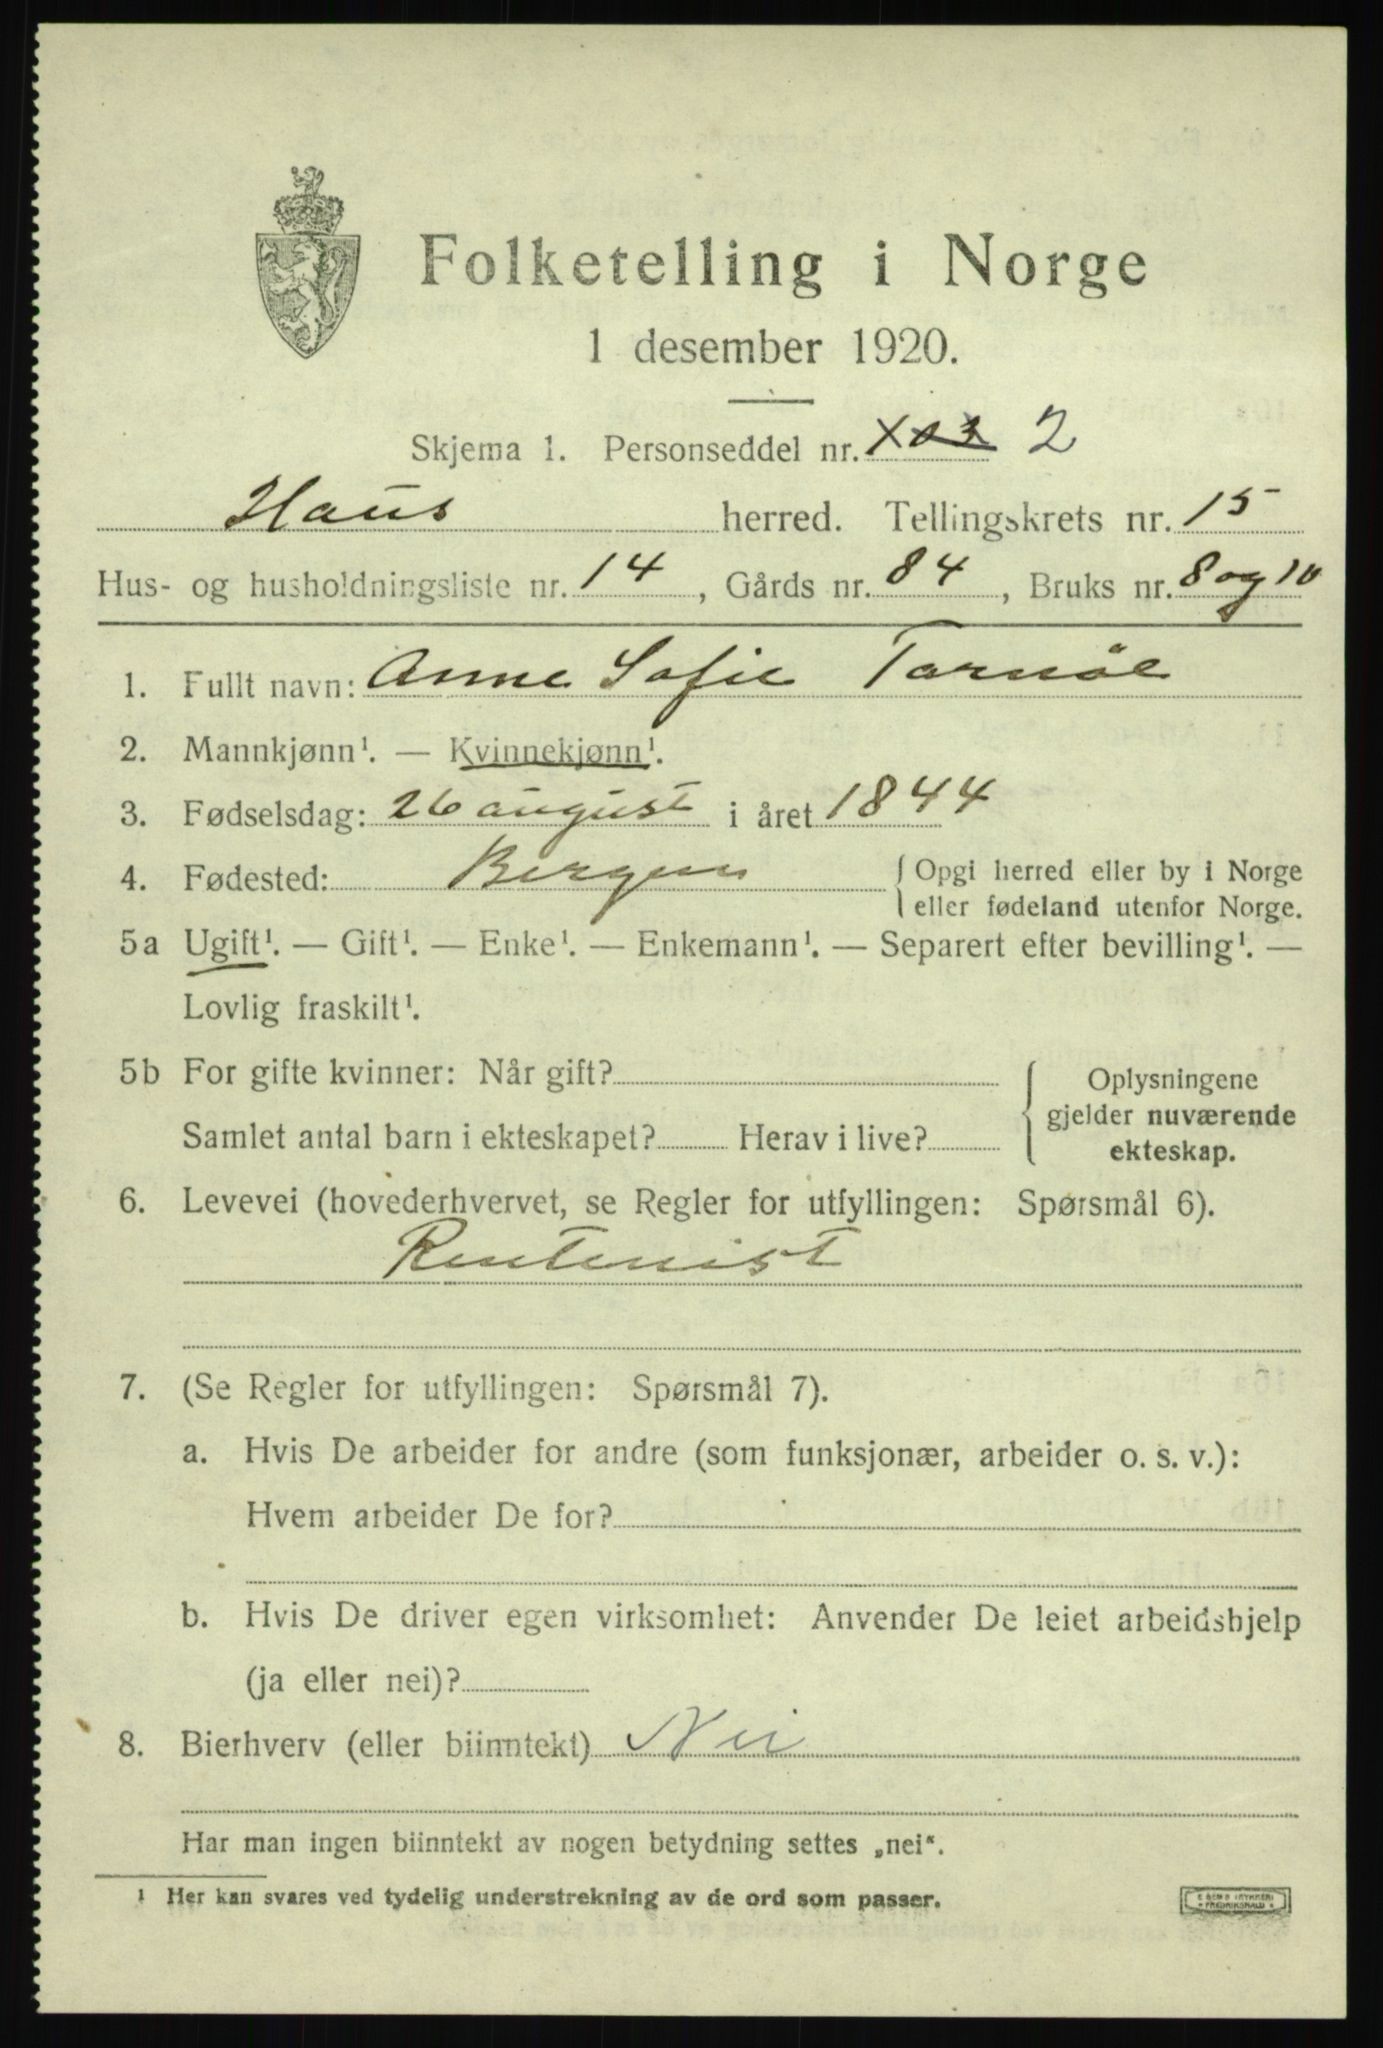 Folketelling i Norge
1 desember 1920.
Skjema 1. Personseddel nr. 2
Haus herred. Tellingskrets nr. 15
Hus- og husholdningsliste nr. 14, Gårds nr. 84, Bruks nr. 8 og 10
1. Fullt navn: Anne Sofie Tornöe
2. Mannkjønn¹. — Kvinnekjønn¹.
3. Fødselsdag: 26 august i året 1844
4. Fødested: Bergen { Opgi herred eller by i Norge
eller fødeland utenfor Norge.
5a Ugift¹. — Gift¹. — Enke¹. — Enkemann¹. — Separert efter bevilling¹. —
Lovlig fraskilt¹.
5b For gifte kvinner: Når gift? { Oplysningene
gjelder nuværende
Samlet antal barn i ekteskapet? Herav i live?
ekteskap.
6. Levevei (hovederhvervet, se Regler for utfyllingen: Spørsmål 6).
Rentenist
7. (Se Regler for utfyllingen: Spørsmål 7).
a. Hvis De arbeider for andre (som funksjonær, arbeider o. s. v.):
Hvem arbeider De for?
b. Hvis De driver egen virksomhet: Anvender De leiet arbeidshjelp
(ja eller nei)?
8. Bierhverv (eller biinntekt) Nei
Har man ingen biinntekt av nogen betydning settes „nei“.
¹ Her kan svares ved tydelig understrekning av de ord som passer.